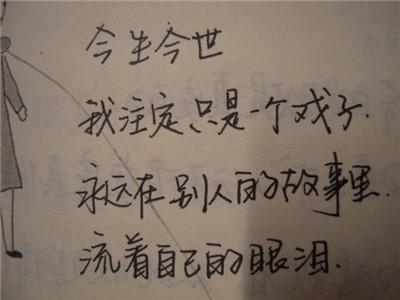 今生今世
我注定只是一个戏子.
永远在别人的故事里.
流着自己的眼泪.